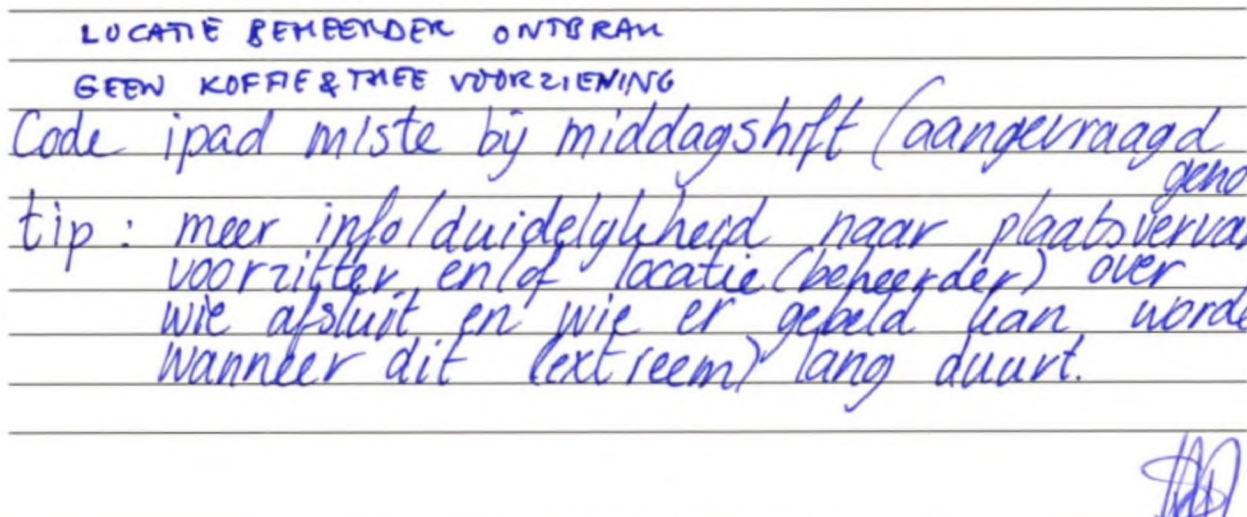 LOCATIE BEHEERDER ONTBRAK
GEEN KOFFIE & THEE VOORZIENING
Code ipad miste bij middagshift (aangevraagd
geno
tip: meer info/duidelijkheid naar plaatsverva
voorzitter en/of locatie (beheerder) over
wie afsluit en wie er gebeld kan worde
wanneer dit (extreem) lang duurt.